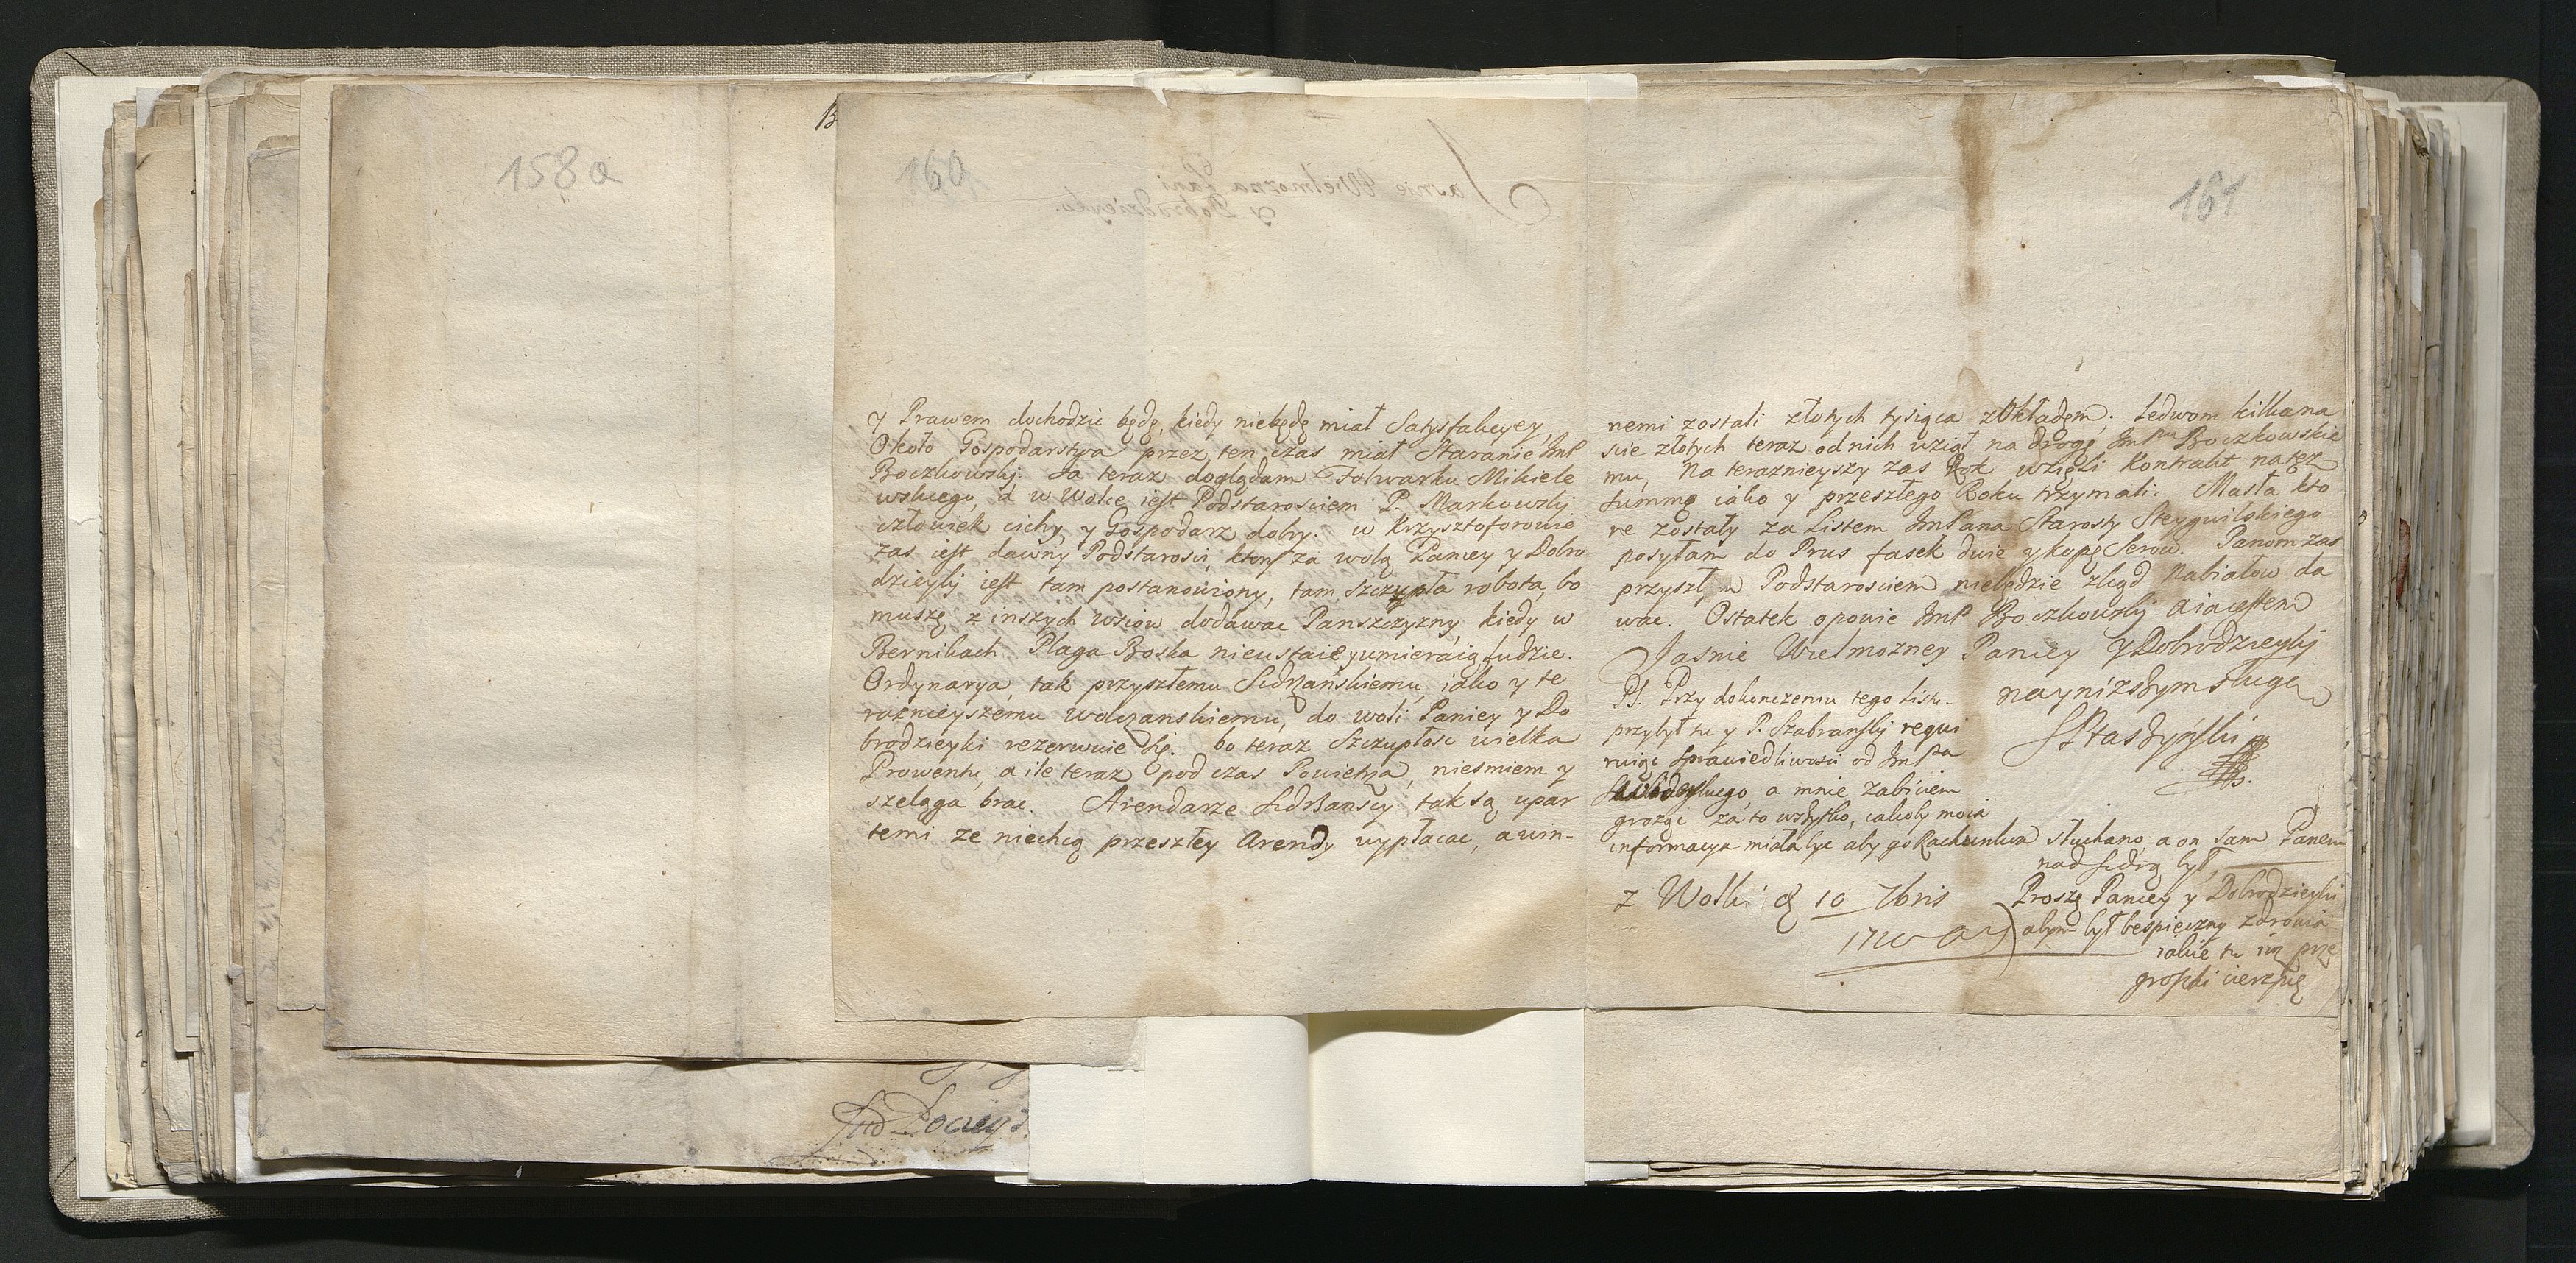 158a
160
y Prawem dochodzic będę, kiedy niebędę miał Satysfakcyey,
Około Gospodarstwa przez ten czas miał Staranie ImP
Boczkowskj. Ja teraz doglądam Folwarku Mikiele
wskiego, a w Wolce iest Podstarosciem P. Markowskj
człowiek cichy, y Gospodarz dobry. w Krzysztoforowie
zas iest dawny Podstarosci, ktory za wolą Paniey y Dobro
dzieykj iest tam postanowiony, tam szczupła robota, bo
muszę z inszych wsiow dodawac Panszczyzny, kiedy w
Bernikach Plaga Boska nieustaie y umieraią ludzie.
Ordynarya, tak przyszłemu Sidrzańskiemu, iako y te
raznieyszemu wolczanskiemu, do woli Paniey y Do
brodzieyki rezerwuie się. bo teraz Szczupłosc wielka
Prowentu, a ile teraz pod czas Powietrza, niesmiem y
szeląga brac. Arendarze Sidrzanscy tak są upar
temi ze niechcą przeszłey Arendy wypłacac, a win-
161
nemi zostali złotych tysiąca z Okładem. Ledwom kilkana
scie złotych teraz od nich wziął na drogę ImPnu Boczkowskie
mu, Na teraznieyszy zas Rok wzięli Kontrakt na tęz
summę iako y przeszłego Roku trzymali. Masła kto
re zostały za Listem ImPana Starosty Steygwilskiego
posyłam do Prus fasek dwie y kopę Serow. Panom zas
przyszłym Podstarosciem niebędzie zkąd Nabiałow da
wac. Ostatek opowie ImP Boczkowskj a ia iestem
Jasnie Wielmozney Paniey y Dobrodzieykj
naynizszym sługą
PS. Przy dokonczeniu tego Listu
przybył tu y P. Szabranskj requi
ruiąc Sprawiedliwosci od ImPa
a mnie zabiciem
grożąc za to wszystko, iakoby moia
informacya miała byc aby go Rachunkow słuchano, a on sam Panem
nad Sidrą był,
Z Wolki d 10 7bris
1710 A
Proszę Paniey y Dobrodzieyki
abym był bespieczny zdrowia
iakie tu iuz prze
grozki cierzpię